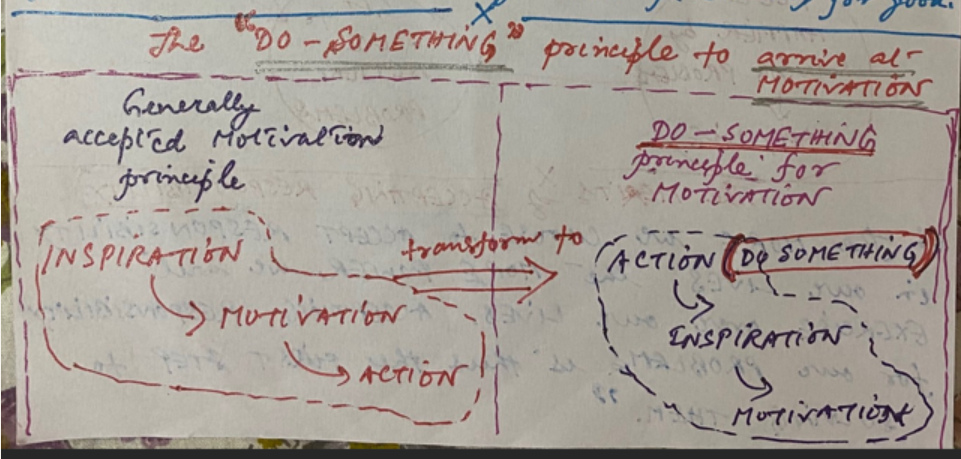 for good.
The "DO-SOMETHING" principle to arrive at
MOTIVATION
Generally
accepted Motivation
principle
INSPIRATION
MOTIVATION
ACTION
transform to
DO-SOMETHING
principle for
MOTIVATION
ACTION (DO SOMETHING)
INSPIRATION
MOTIVATION